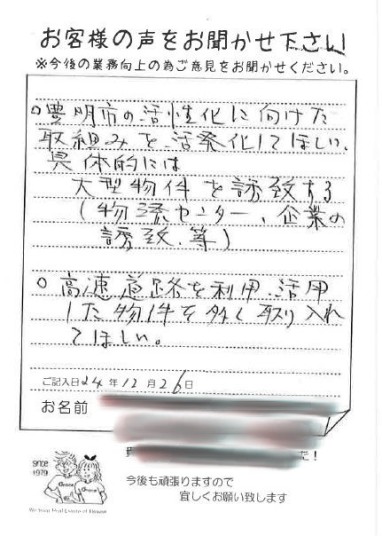 お客様の声をお聞かせ下さい
※今後の業務向上の為ご意見をお聞かせください。
○豊明市の活性化に向けた
取組みを活発化してほしい。
具体的には
大型物件を誘致する
(物流センター、企業の
誘致.等)
○高速道路を利用.活用
した物件を多く取り入れ
てほしい。
ご記入日24年12月26日
お名前
た!
since
1979
今後も頑張りますので
宜しくお願い致します